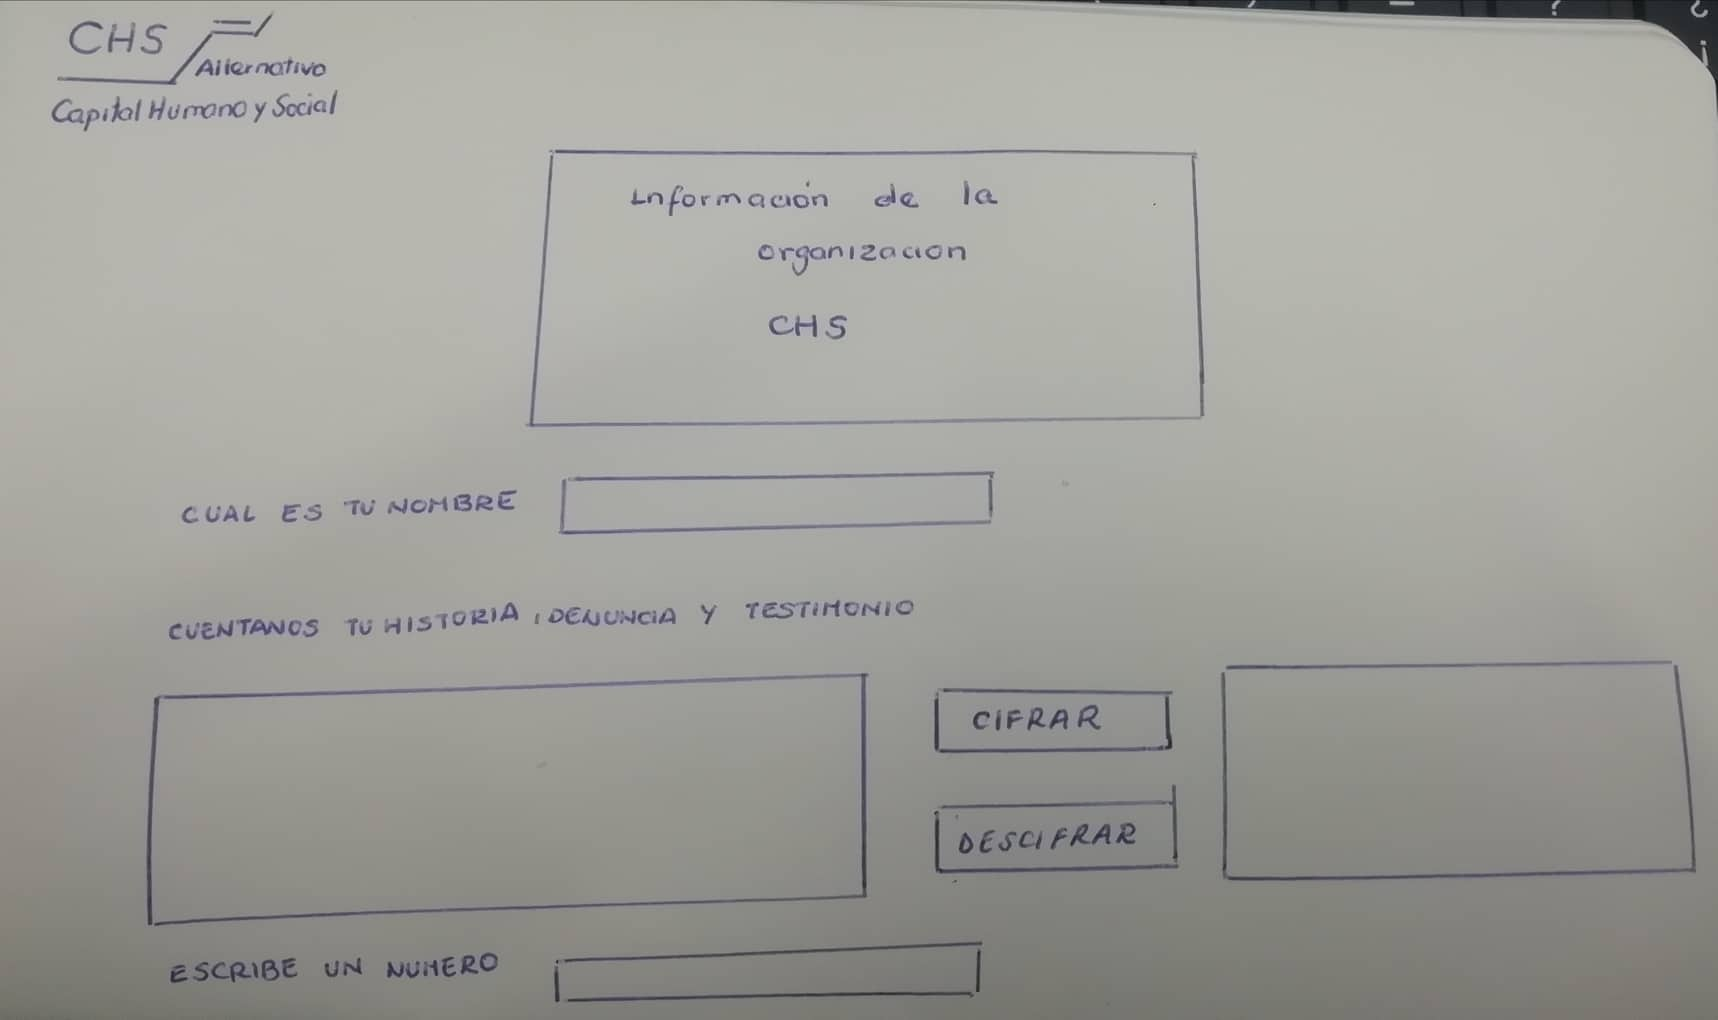 CHS
Alternativo
Capital Humano y Social
Información de la
organizacion
CHS
CUAL ES TU NOMBRE
CUENTANOS TU HISTORIA, DENUNCIA Y TESTIMONIO
CIFRAR
DESCIFRAR
ESCRIBE UN NUMERO